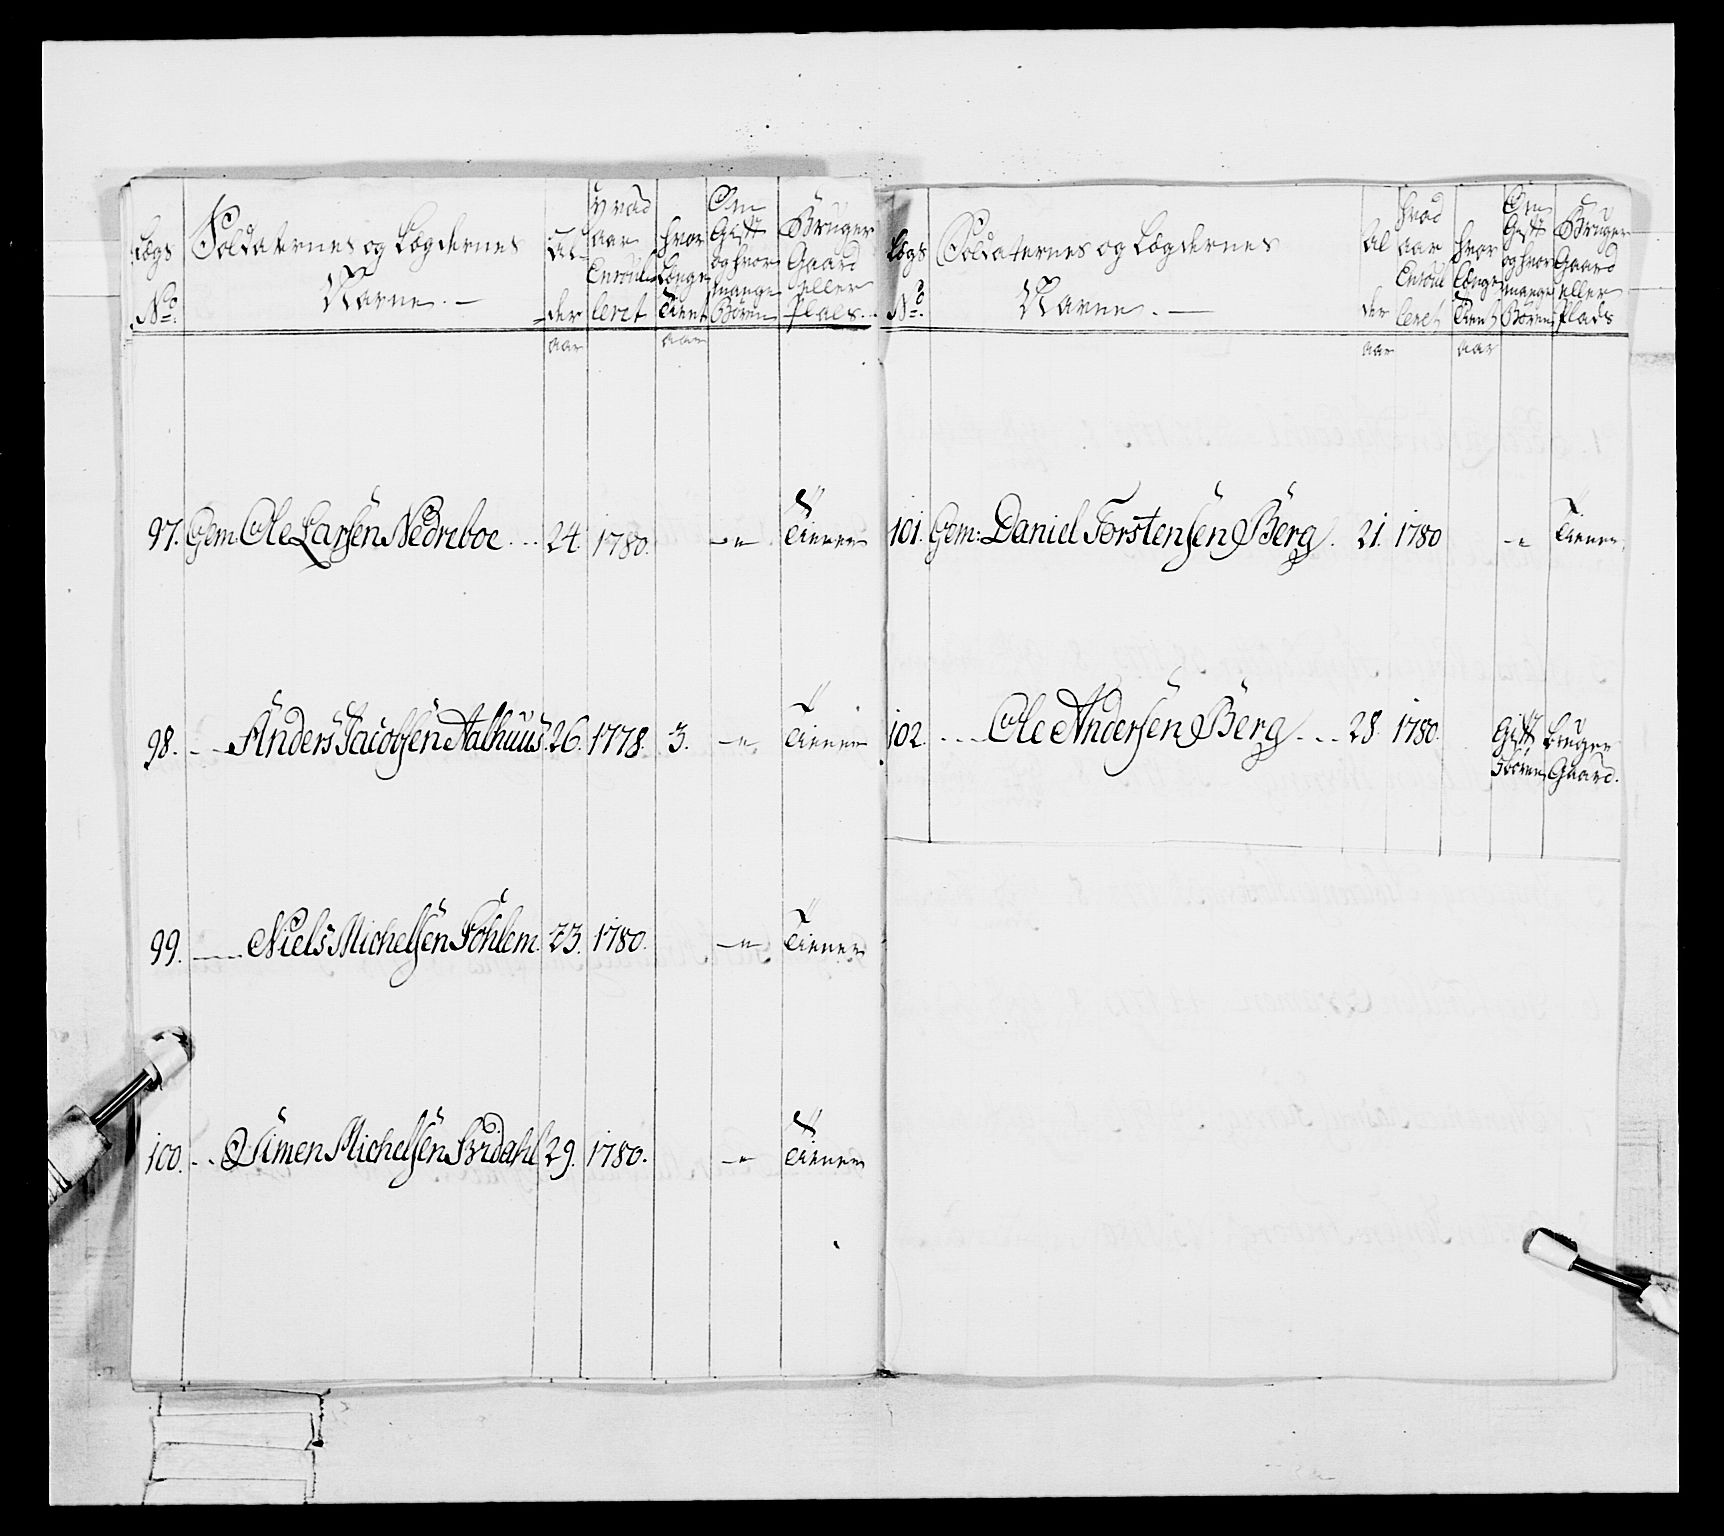 Legs No: Soldaternes og Legdernes Navne. — Alder Hvad aar Enroulleret hvor længe Tient Om Gift og hvor mange Børn Bruger Gaard eller Plads.
aar aar
97. Gem: Ole Larsen Nedreboe ... 24. 1780. — " Tiener
98. — Anders Jacobsen Aalhuus. 26. 1778. 3. — " Tiener
99. — Niels Michelsen 23. 1780. — " Tiener
100. — Simen Michelsen 29. 1780. — " Tiener
Legs No: Soldaternes og Legdernes Navne. — Alder hvad aar Enroulleret hvor længe Tient Om Gift og hvor mange Børn Bruger Gaard eller Plads
aar aar
101. Gem: Daniel Torstensen Berg. 21. 1780 — " Tiener
102. — Ole Andersen Berg — 28. 1780. Gift bruger
3 børn Gaard.